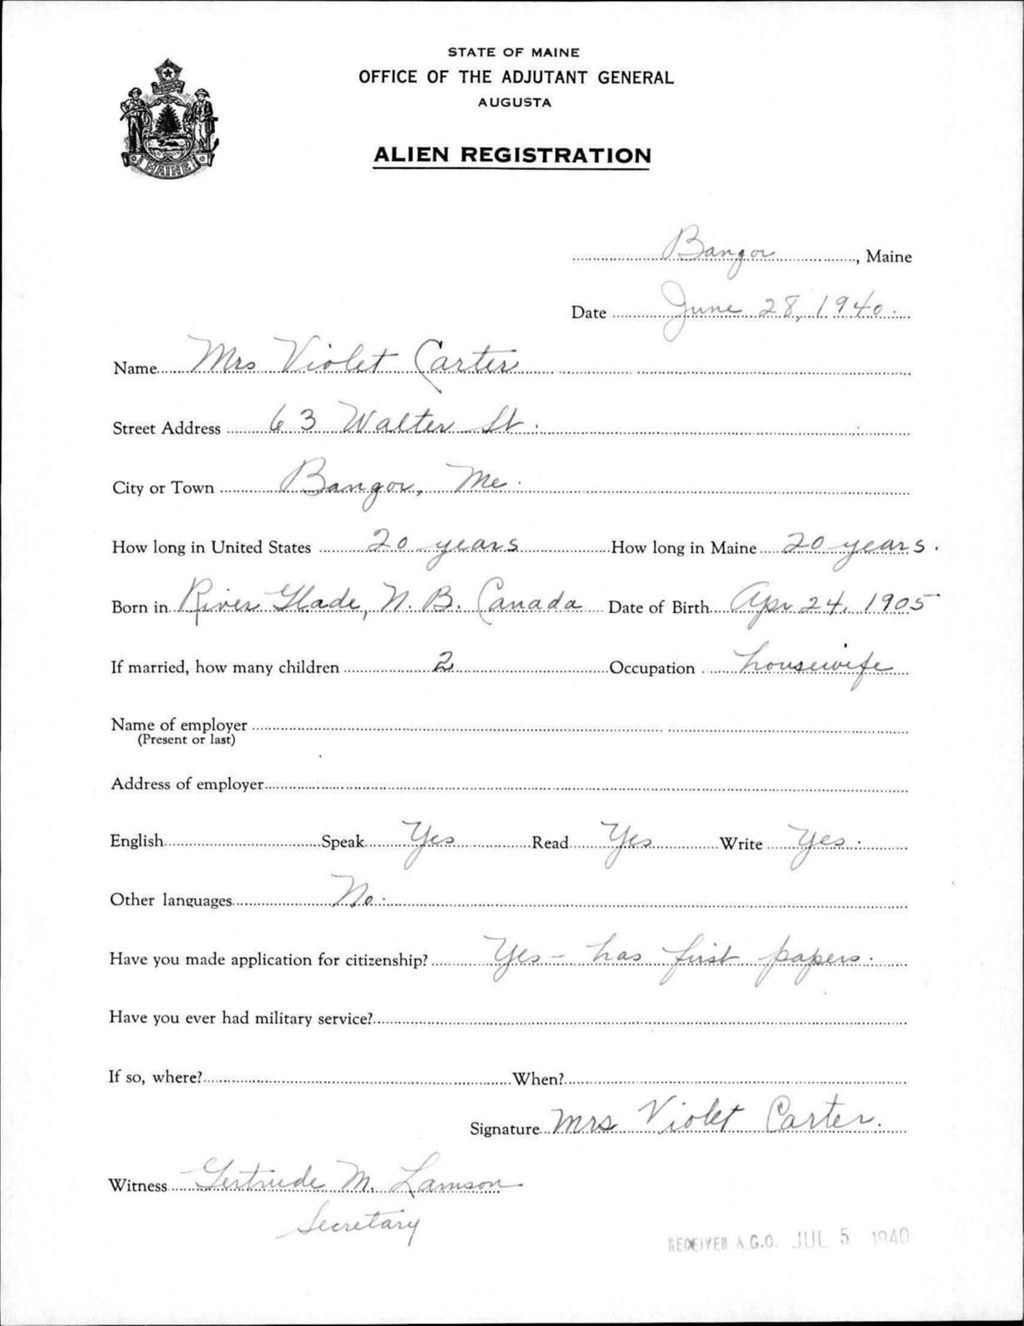 STATE OF MAINE
OFFICE OF THE ADJUTANT GENERAL
AUGUSTA
ALIEN REGISTRATION
MAINE
Bangor, Maine
Date June 28, 1940.
Name Mrs Violet Carter
Street Address 63 Walter St.
City or Town Bangor, Me.
How long in United States 20 years How long in Maine 20 years.
Born in River Glade, N. B. Canada Date of Birth Apr 24, 1905
If married, how many children 2 Occupation housewife
Name of employer
(Present or last)
Address of employer
English Speak Yes Read Yes Write Yes.
Other languages No.
Have you made application for citizenship? Yes - has first papers.
Have you ever had military service?
If so, where? When?
Signature Mrs Violet Carter.
Witness Gertrude M. Lamson
Secretary
RECEIVED A.G.O. JUL 5 1940